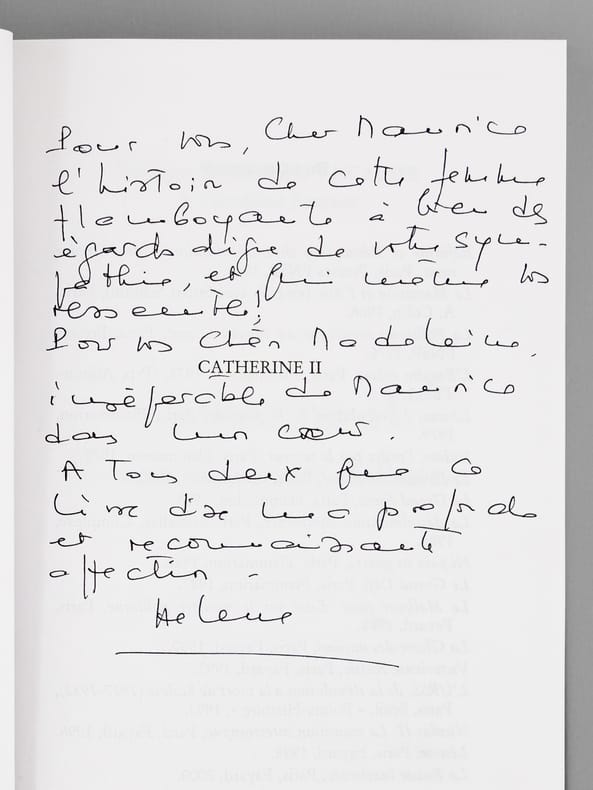 Pour vous, Cher Maurice
l'histoire de cette femme
flamboyante à bien des
égards digne de votre sym-
pathie, et qui même vous
ressemble!
Pour vous Chère Madeleine,
CATHERINE II
inséparable de Maurice
dans mon coeur.
A Tous deux que ce
Livre dise ma profonde
et reconnaissante
affection -
Helene